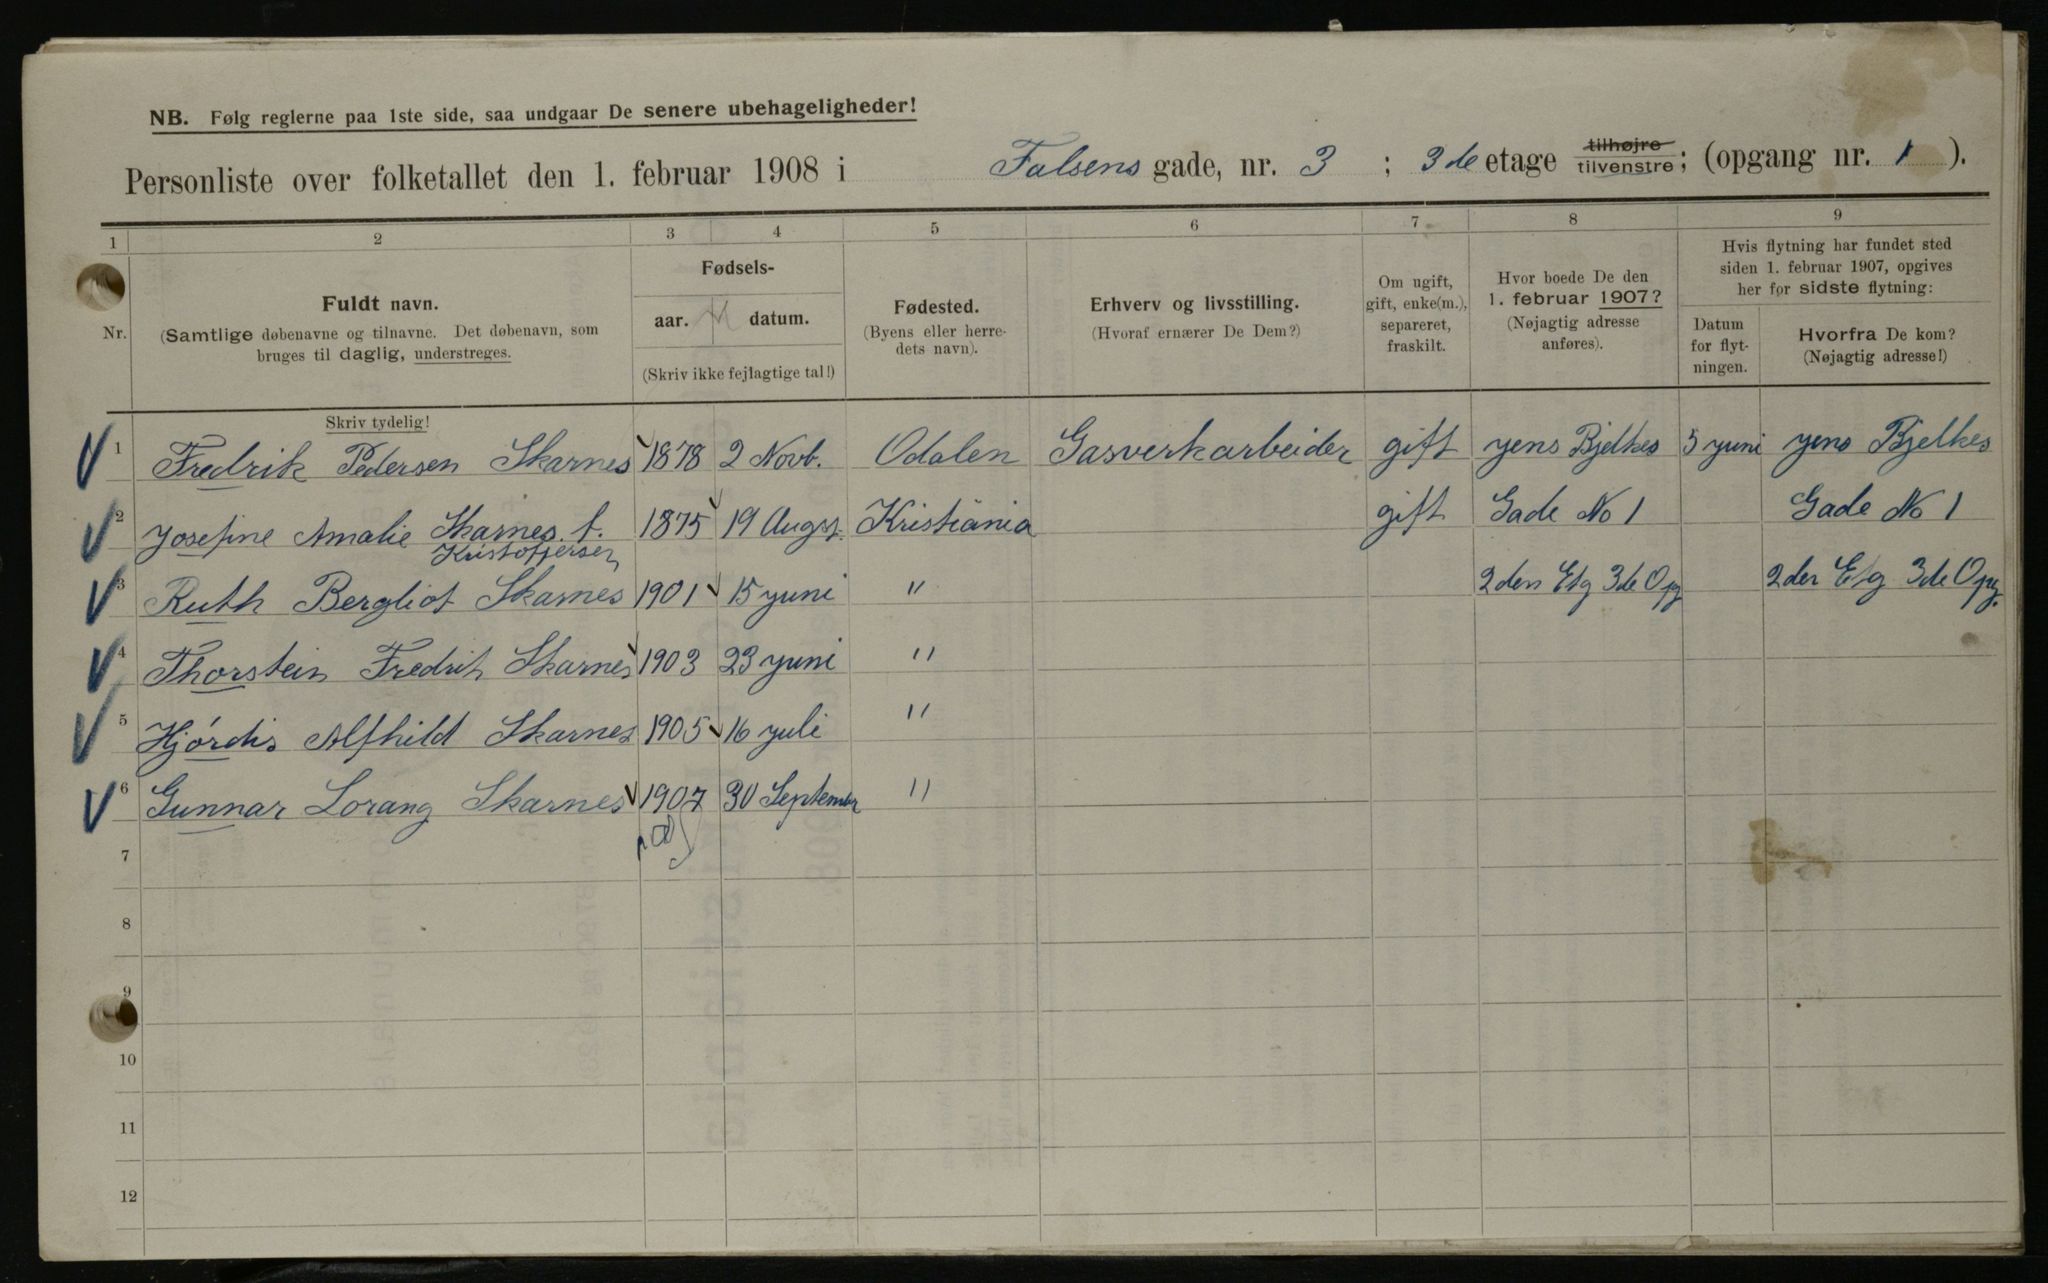 NB. Følg reglerne paa 1ste side, saa undgaar De senere ubehageligheder!
Personliste over folketallet den 1. februar 1908 i Falsens gade, nr. 3 ; 3de etage tilhøjre tilvenstre; (opgang nr. 1 ).
1 2 3 4 5 6 7 8 9
Nr.
Fuldt navn.
(Samtlige døbenavne og tilnavne. Det døbenavn, som
bruges til daglig, understreges.
Skriv tydelig!
Fødsels-
aar. datum.
(Skriv ikke fejlagtige tal!)
Fødested.
(Byens eller herre-
dets navn).
Erhverv og livsstilling.
(Hvoraf ernærer De Dem?)
Om ugift,
gift, enke(m.),
separeret,
fraskilt.
Hvor boede De den
1. februar 1907?
(Nøjagtig adresse
anføres).
Hvis flytning har fundet sted
siden 1. februar 1907, opgives
her for sidste flytning:
Datum
for flyt-
ningen.
Hvorfra De kom?
(Nøjagtig adresse!)
1 Fredrik Pedersen Skarnes 1878 2 Novb. Odalen Gasverkarbeider gift yens Bjelkes 5 yuni yens Bjelkes
2 Josefine Amalie Skarnes f. Kristoffersen 1875 19 Augst. Kristiania gift Gade No 1 Gade No 1
3 Ruth Bergliot Skarnes 1901 15 yuni " 2den Etg 3de Opg 2der Etg 3de Opg.
4 Thorstein Fredrik Skarnes 1903 23 yuni "
5 Hjórdis Alfhild Skarnes 1905 16 yuli "
6 Gunnar Lorang Skarnes 1907 30 September "
7
8
9
10
11
12